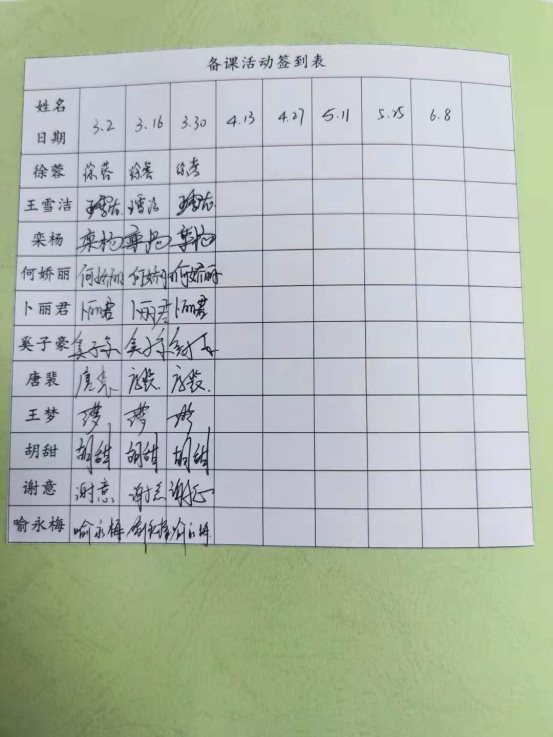 备课活动签到表
姓名
日期 3.2 3.16 3.30 4.13 4.27 5.11 5.25 6.8
徐蓉 徐蓉 徐蓉 徐蓉
王雪洁 王雪洁 王雪洁 王雪洁
栾杨 栾杨 栾杨 栾杨
何娇丽 何娇丽 何娇丽 何娇丽
卜丽君 卜丽君 卜丽君 卜丽君
奚子豪 奚子豪 奚子豪
唐裴 唐裴 唐裴 唐裴
王梦
胡甜 胡甜 胡甜 胡甜
谢意 谢意 谢意 谢意
喻永梅 喻永梅 喻永梅 喻永梅